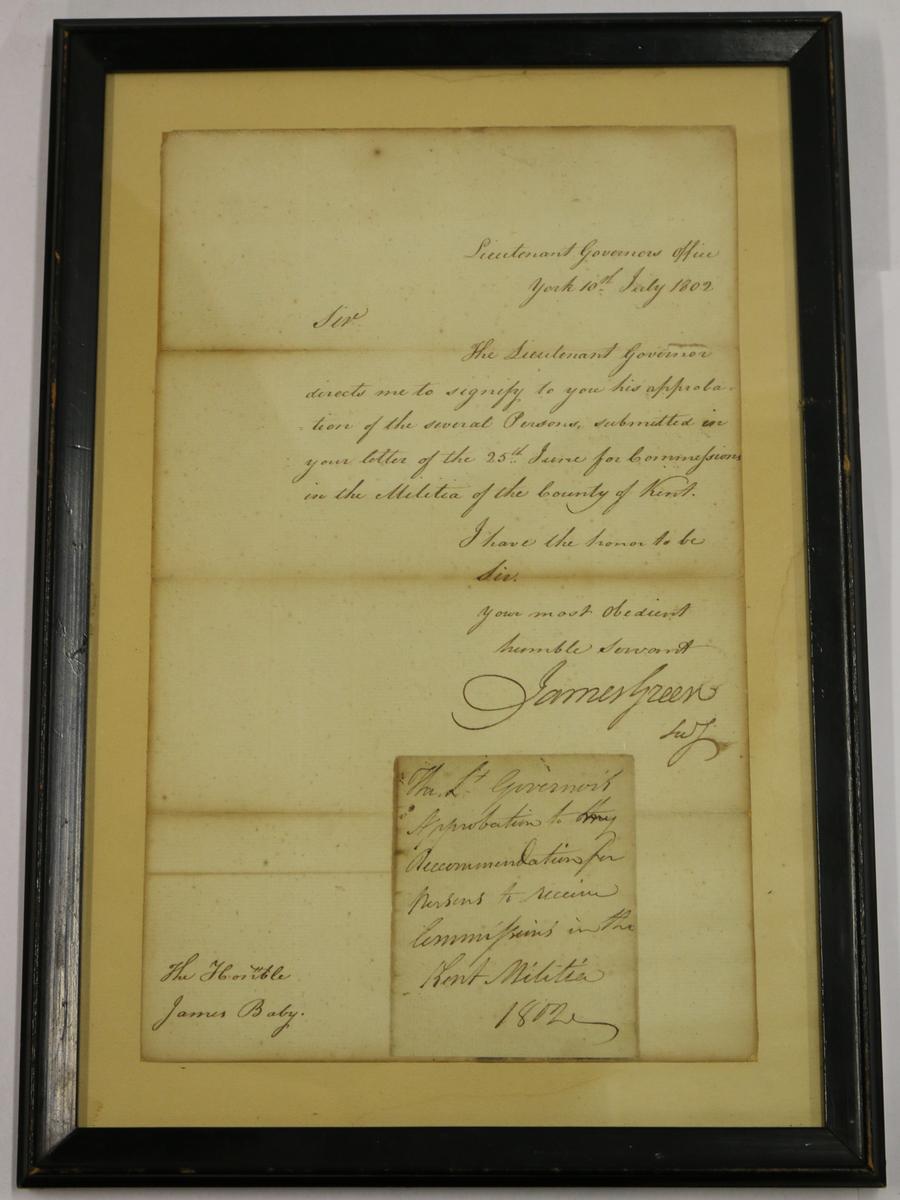 Lieutenant Governors Office
York 10th July 1802
Sir
The Lieutenant Governor
directs me to signify to you his approba-
-tion of the several Persons, submitted in
your letter of the 25th June for Commissions
in the Militia of the County of Kent.
I have the honor to be
Sir.
Your most Obedient
humble Servant
James Green
Secy
The Lt Governor's
Approbation to my
Recommendation for
Persons to receive
Commissions in the
Kent Militia
1802
The Honble
James Baby.